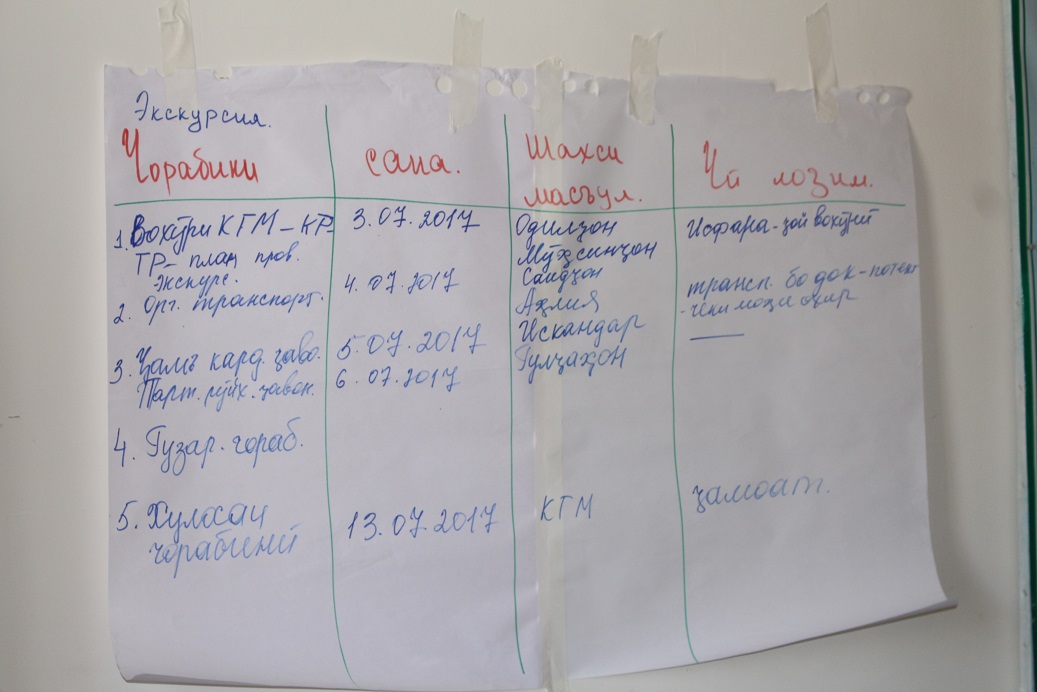 Экскурсия.
Чорабини сана. Шахси масъул. Чӣ лозим.
1. Вохӯри КГМ – КР 3.07.2017 Одилҷон Исфара - ҷой вохӯрӣ
ТР – план пров. Мӯҳсинҷон
Экскурс. Саидҷон
2. Орг. транспорт. 4.07.2017 Аҳлия трансп. бо док -
Искандар
3. Ҷамъ кард. ҷаво. 5.07.2017 Гулҷаҳон
Парт. рӯйх. ҷавон. 6.07.2017
4. Гузар. чораб.
5. Хулосаи 13.07.2017 КГМ ҷамоат.
чорабинӣ